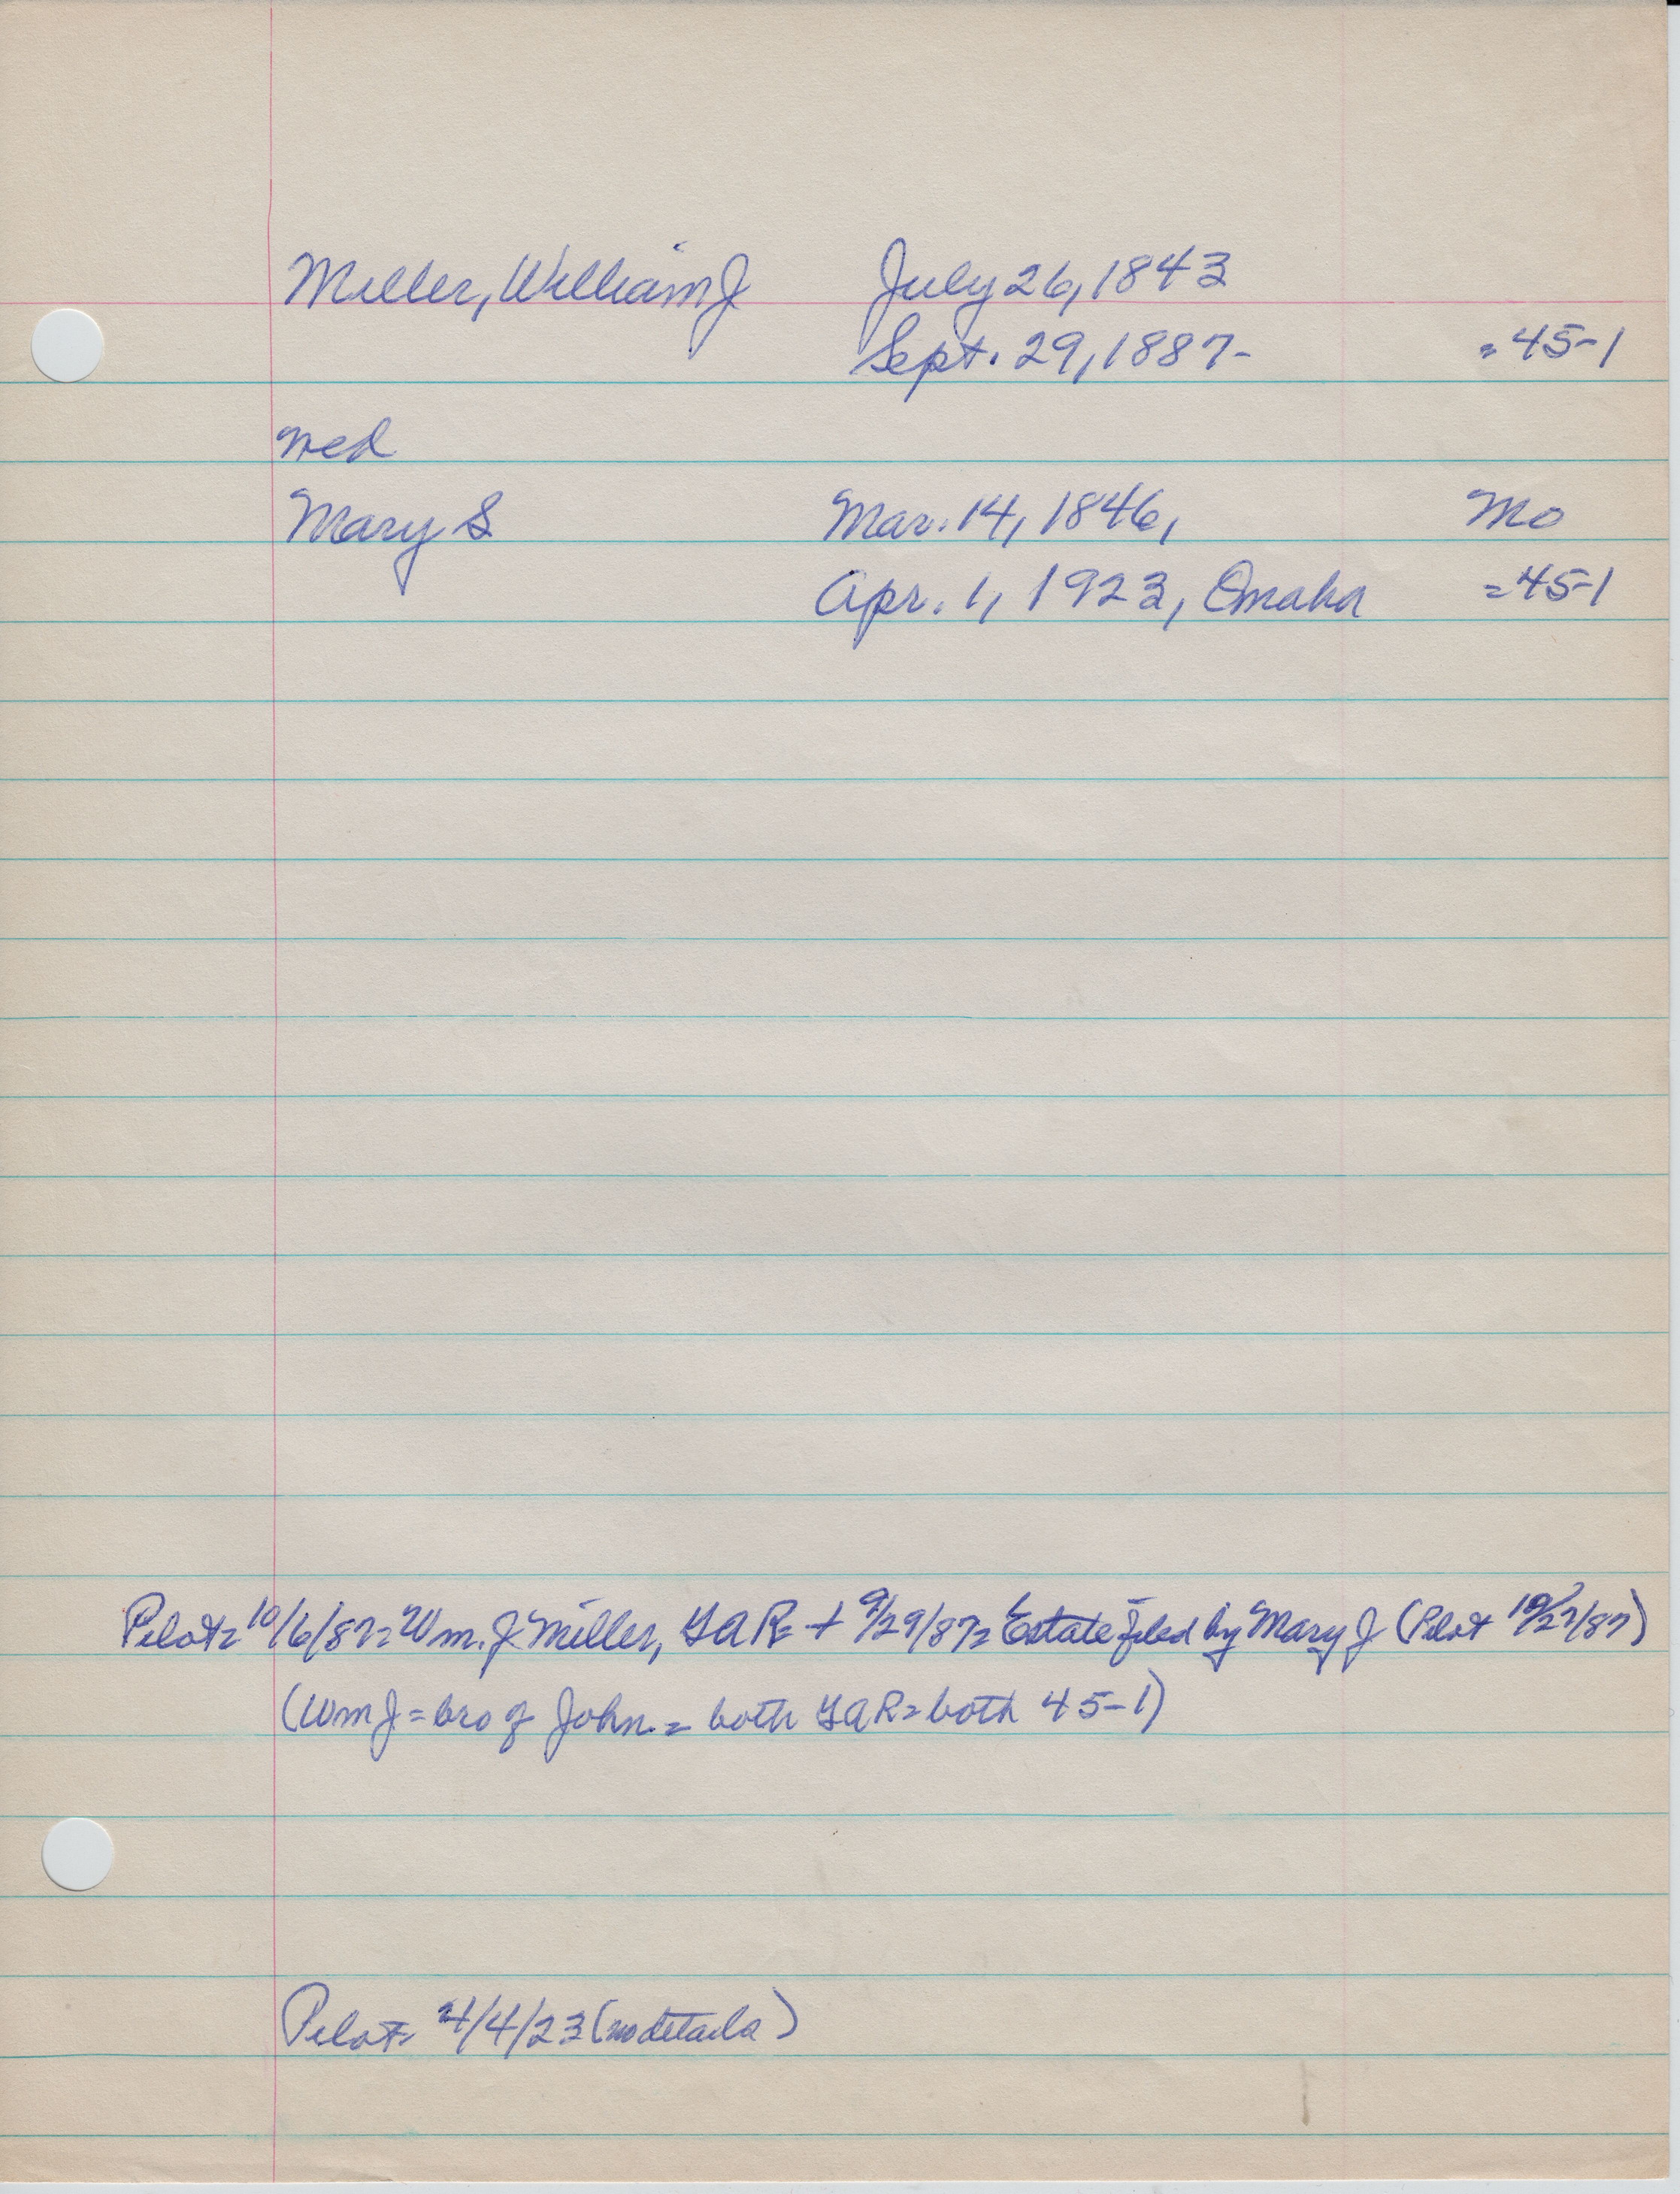 Miller, William J July 26, 1843
Sept. 29, 1887- =45-1
wed
Mary S Mar. 14, 1846, Mo
Apr. 1, 1923, Omaha =45-1
Pilot= 10/6/87= Wm. J. Miller, GAR= + 9/29/87= Estate filed by Mary J (Pilot 10/27/87)
(Wm J = bro of John = both GAR= both 45-1)
Pilot= 4/4/23 (no details)